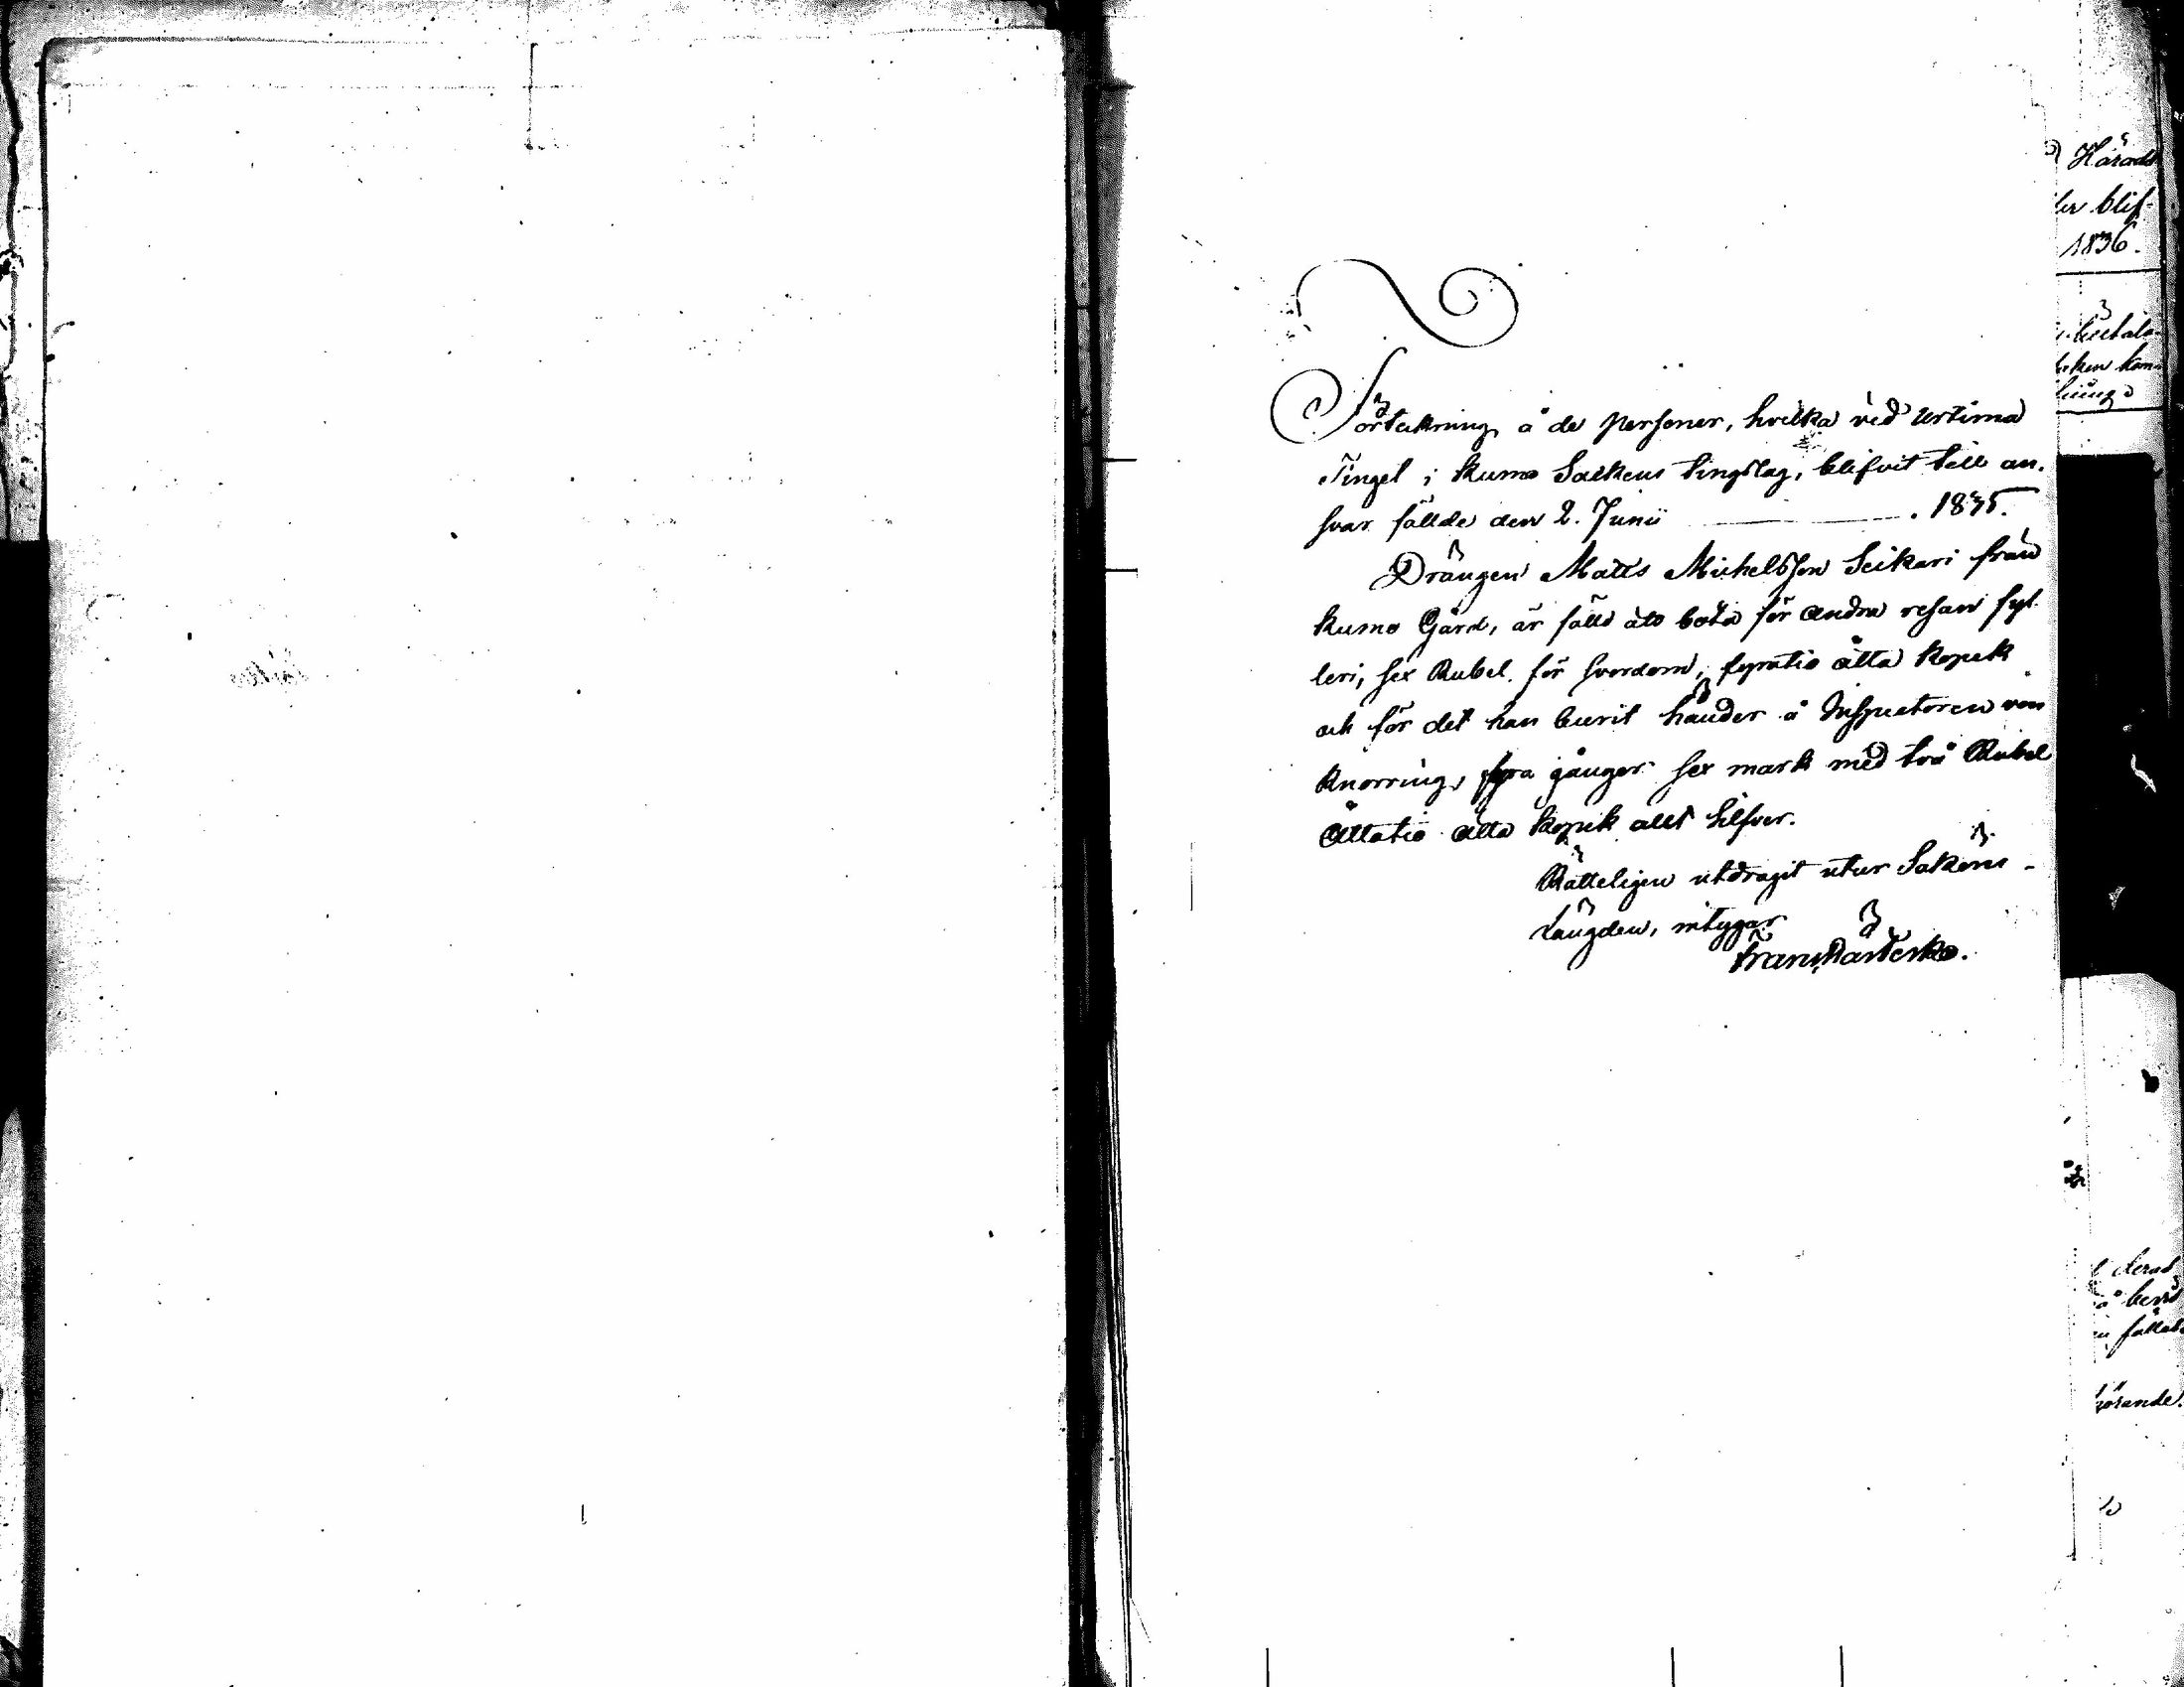 Förtekning å de personer, hvilka vid Urtima
Tinget i Kumo Sockens tingslag, blifvit till an-
svar fällde den 2. Junii . 1835.
Drängen Matts Michelsson Seikari från
Kumo Gård, är fälld att böta för andra resan fyl-
leri, sex Rubel för svordom, fyratio åtta Kopek
och för det han burit händer å Inspectoren von
Knorring, fyra gånger sex mark med två Rubel
Åttatio åtta kopek allt Silfver.
Rätteligen utdragit utur Sakörs-
Längden, intygar
Härads
blif-
1836.
derad
å
hörande.